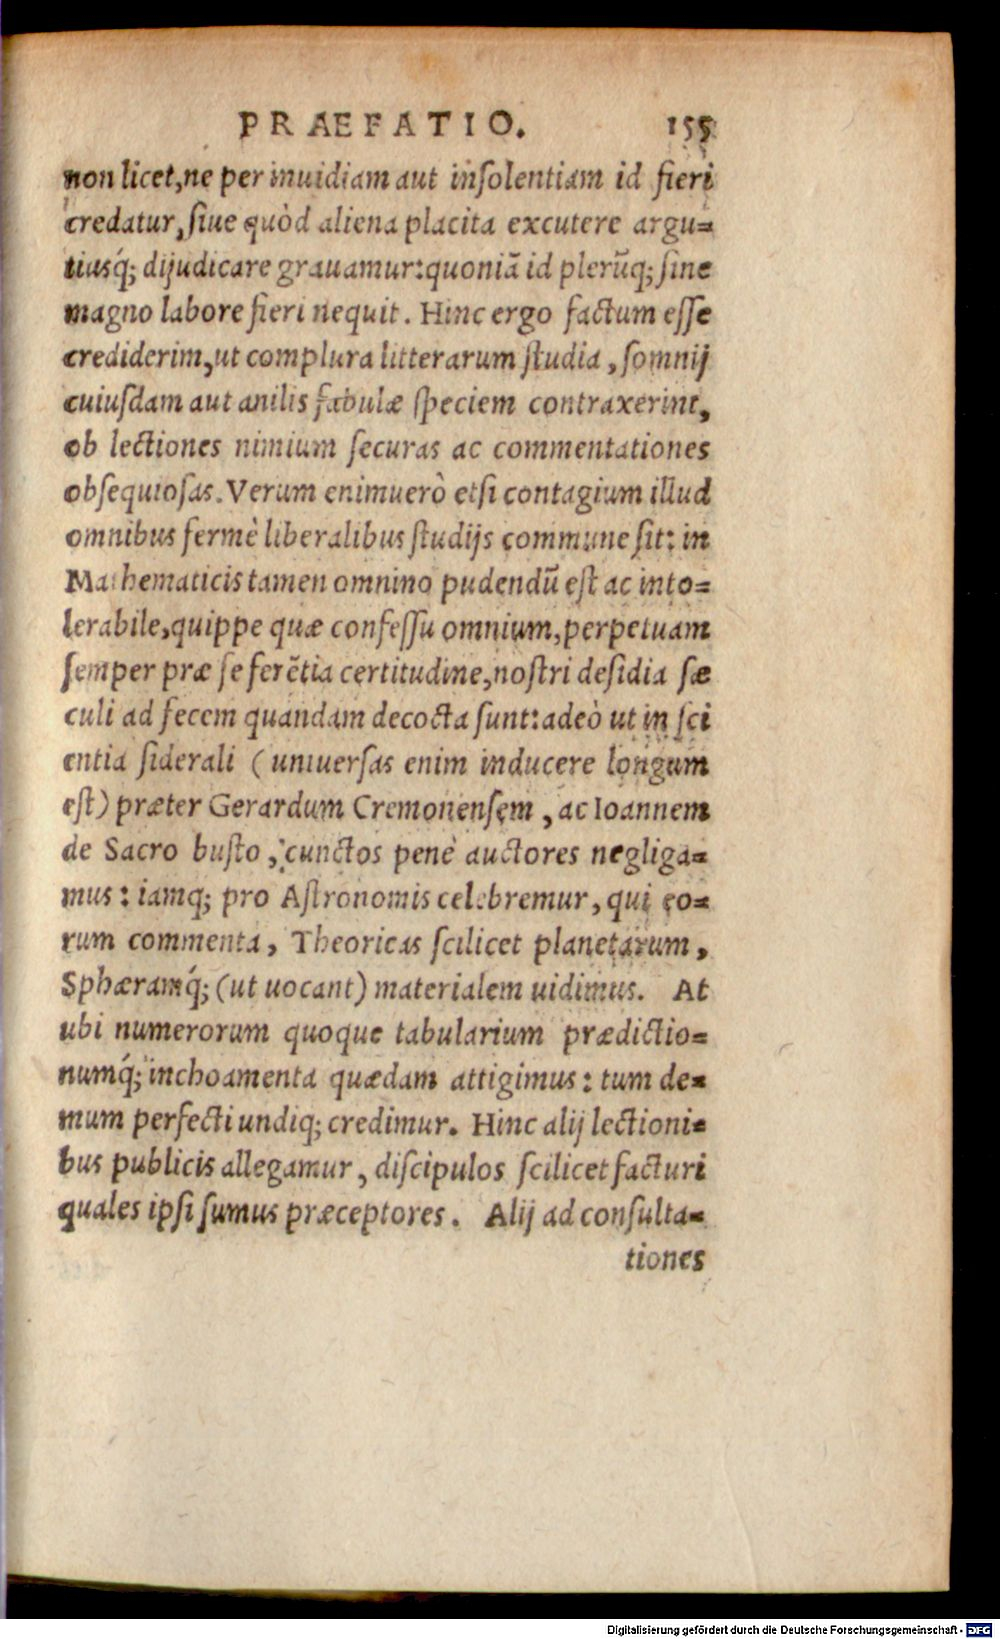 PRAEFATIO. 155
non licet,ne per inuidiam aut insolentiam id fieri
credatur,siue quòd aliena placita excutere argu=
tiusq́; dijudicare grauamur:quoniā id plerūq; sine
magno labore fieri nequit. Hinc ergo factum esse
crediderim,ut complura litterarum studia, somnij
cuiusdam aut anilis fabulæ speciem contraxerint,
ob lectiones nimium securas ac commentationes
obsequiosas. Verum enimuerò etsi contagium illud
omnibus fermè liberalibus studijs commune sit: in
Mathematicis tamen omnino pudendū est ac into=
lerabile,quippe quæ confessu omnium,perpetuam
semper præ se ferētia certitudine,nostri desidia sæ
culi ad fecem quandam decocta sunt:adeò ut in sci
entia siderali (uniuersas enim inducere longum
est) præter Gerardum Cremonensem, ac Ioannem
de Sacro busto, cunctos penè auctores negliga=
mus: iamq; pro Astronomis celebremur, qui eo=
rum commenta, Theoricas scilicet planetarum,
Sphæramq́; (ut uocant) materialem uidimus. At
ubi numerorum quoque tabularium prædictio=
numq́; inchoamenta quædam attigimus: tum de=
mum perfecti undiq; credimur. Hinc alij lectioni=
bus publicis allegamur, discipulos scilicet facturi
quales ipsi sumus præceptores. Alij ad consulta=
tiones
Digitalisierung gefördert durch die Deutsche Forschungsgemeinschaft - DFG